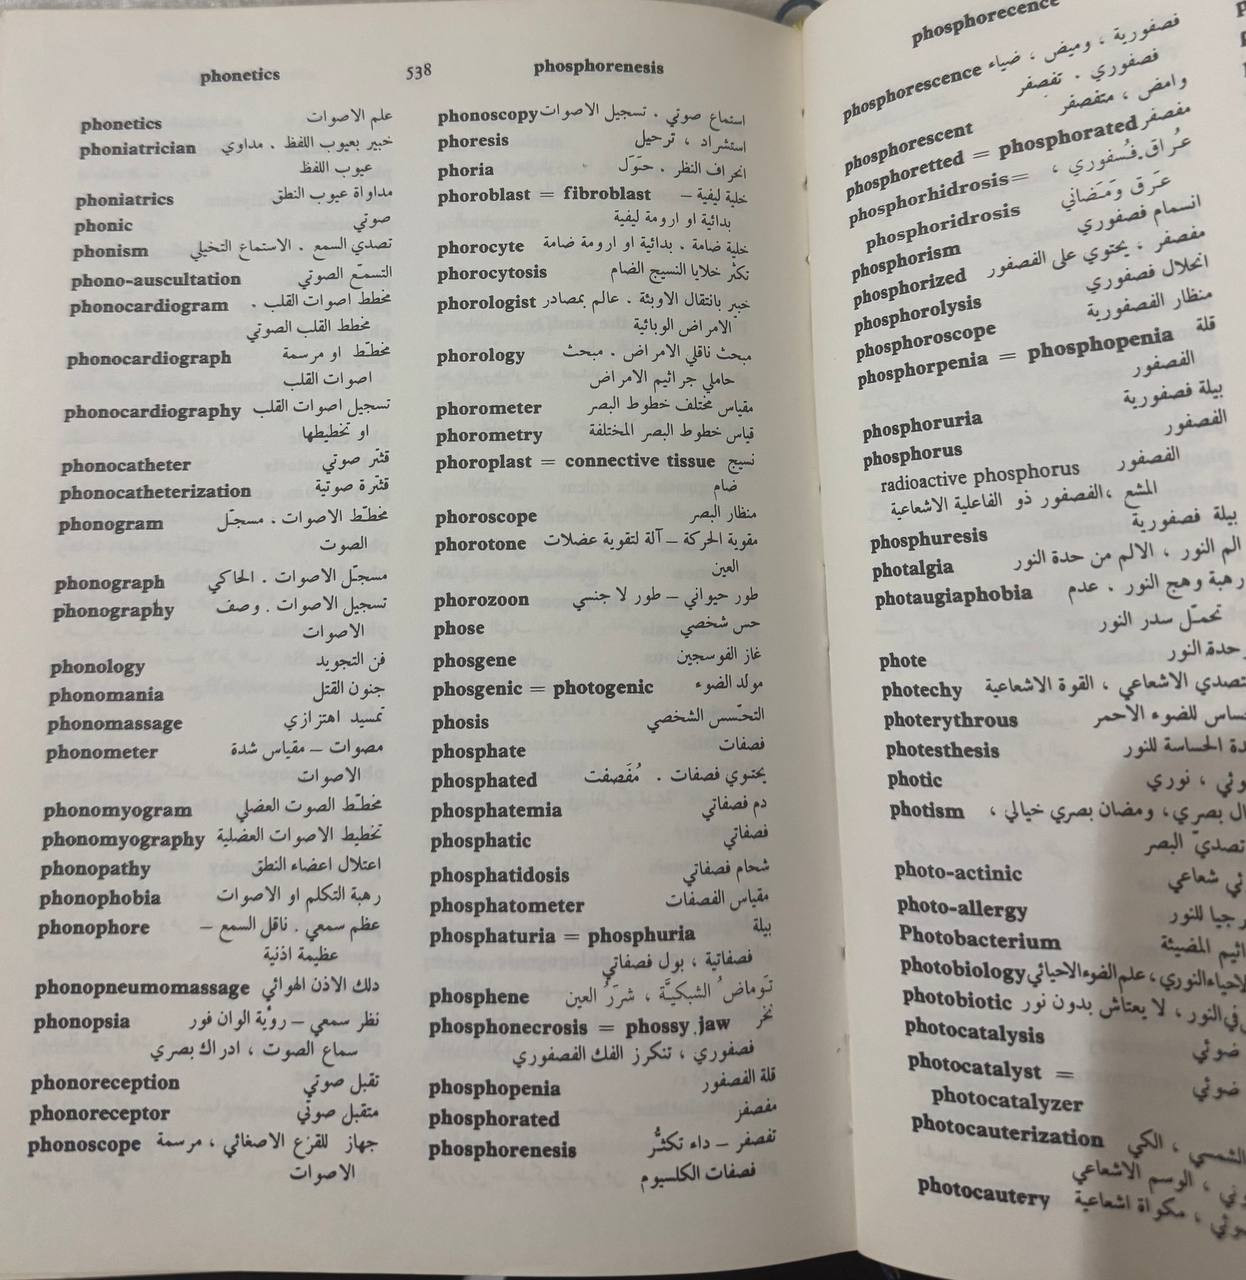 phonetics 538 phosphorenesis
phonetics علم الاصوات
phoniatrician خبير بعيوب اللفظ . مداوي
عيوب اللفظ
phoniatrics مداواة عيوب النطق
phonic صوتي
phonism تصدي السمع . الاستماع التخيلي
phono-auscultation التسمّع الصوتي
phonocardiogram مخطط اصوات القلب .
مخطط القلب الصوتي
phonocardiograph مخطّط او مرسمة
اصوات القلب
phonocardiography تسجيل اصوات القلب
او تخطيطها
phonocatheter قثّر صوتي
phonocatheterization قثّرة صوتية
phonogram مخطّط الاصوات . مسجّل
الصوت
phonograph مسجّل الاصوات . الحاكي
phonography تسجيل الاصوات . وصف
الاصوات
phonology فن التجويد
phonomania جنون القتل
phonomassage تمسيد اهتزازي
phonometer مصوات – مقياس شدة
الاصوات
phonomyogram مخطّط الصوت العضلي
phonomyography تخطيط الاصوات العضلية
phonopathy اعتلال اعضاء النطق
phonophobia رهبة التكلم او الاصوات
phonophore عظم سمعي . ناقل السمع –
عظيمة اذنية
phonopneumomassage دلك الاذن الهوائي
phonopsia نظر سمعي – رؤية الوان فور
سماع الصوت ، ادراك بصري
phonoreception تقبل صوتي
phonoreceptor متقبل صوتي
phonoscope جهاز للقرع الاصغائي ، مرسمة
الاصوات
phonoscopy استماع صوتي . تسجيل الاصوات
phoresis استشراد ، ترحيل
phoria انحراف النظر . حَوَل
phoroblast = fibroblast خلية ليفية –
بدائية او ارومة ليفية
phorocyte خلية ضامة . بدائية او ارومة ضامة
phorocytosis تكثّر خلايا النسيج الضام
phorologist خبير بانتقال الاوبئة . عالم بمصادر
الامراض الوبائية
phorology مبحث ناقلي الامراض . مبحث
حاملي جراثيم الامراض
phorometer مقياس مختلف خطوط البصر
phorometry قياس خطوط البصر المختلفة
phoroplast = connective tissue نسيج
ضام
phoroscope منظار البصر
phorotone مقوية الحركة – آلة لتقوية عضلات
العين
phorozoon طور حيواني – طور لا جنسي
phose حس شخصي
phosgene غاز الفوسجين
phosgenic = photogenic مولد الضوء
phosis التحسّس الشخصي
phosphate فصفات
phosphated يحتوي فصفات . مُفَصفت
phosphatemia دم فصفاتي
phosphatic فصفاتي
phosphatidosis شحام فصفاتي
phosphatometer مقياس الفصفات
phosphaturia = phosphuria بيلة
فصفاتية ، بول فصفاتي
phosphene تَوماض الشبكيّة ، شررُ العين
phosphonecrosis = phossy jaw نخر
فصفوري ، تنكرز الفك الفصفوري
phosphopenia قلة الفصفور
phosphorated مفصفر
phosphorenesis تفصفر – داء تكثُّر
فصفات الكلسيوم
phosphorecence
phosphorescence فصفورية ، وميض ، ضياء
فصفوري . تفصفر
phosphorescent وامض ، متفصفر
phosphoretted = phosphorated مفصفر
phosphorhidrosis= عُراق فُسفوري ،
phosphoridrosis عَرق وَمَضاني
phosphorism انسمام فصفوري
phosphorized مفصفر ، يحتوي على الفصفور
phosphorolysis انحلال فصفوري
phosphoroscope منظار الفصفورية
phosphorpenia = phosphopenia قلة
الفصفور
phosphoruria بيلة فصفورية
phosphorus الفصفور
radioactive phosphorus الفصفور
المشع ،الفصفور ذو الفاعلية الاشعاعية
phosphuresis بيلة فصفورية
photalgia الم النور ، الالم من حدة النور
photaugiaphobia رهبة وهج النور . عدم
تحمّل سدر النور
phote حدة النور
photechy تصدي الاشعاعي ، القوة الاشعاعية
photerythrous للضوء الاحمر
photesthesis الحساسة للنور
photic نوري
photism بصري، ومضان بصري خيالي ،
تصديّ البصر
photo-actinic شعاعي
photo-allergy للنور
Photobacterium المضيئة
photobiology النوري، علم الضوء الاحيائي
photobiotic في النور ، لا يعتاش بدون نور
photocatalysis ضوئي
photocatalyst = ضوئي
photocatalyzer
photocauterization الشمسي ، الكي
، الوسم الاشعاعي
photocautery ، مكواة اشعاعية